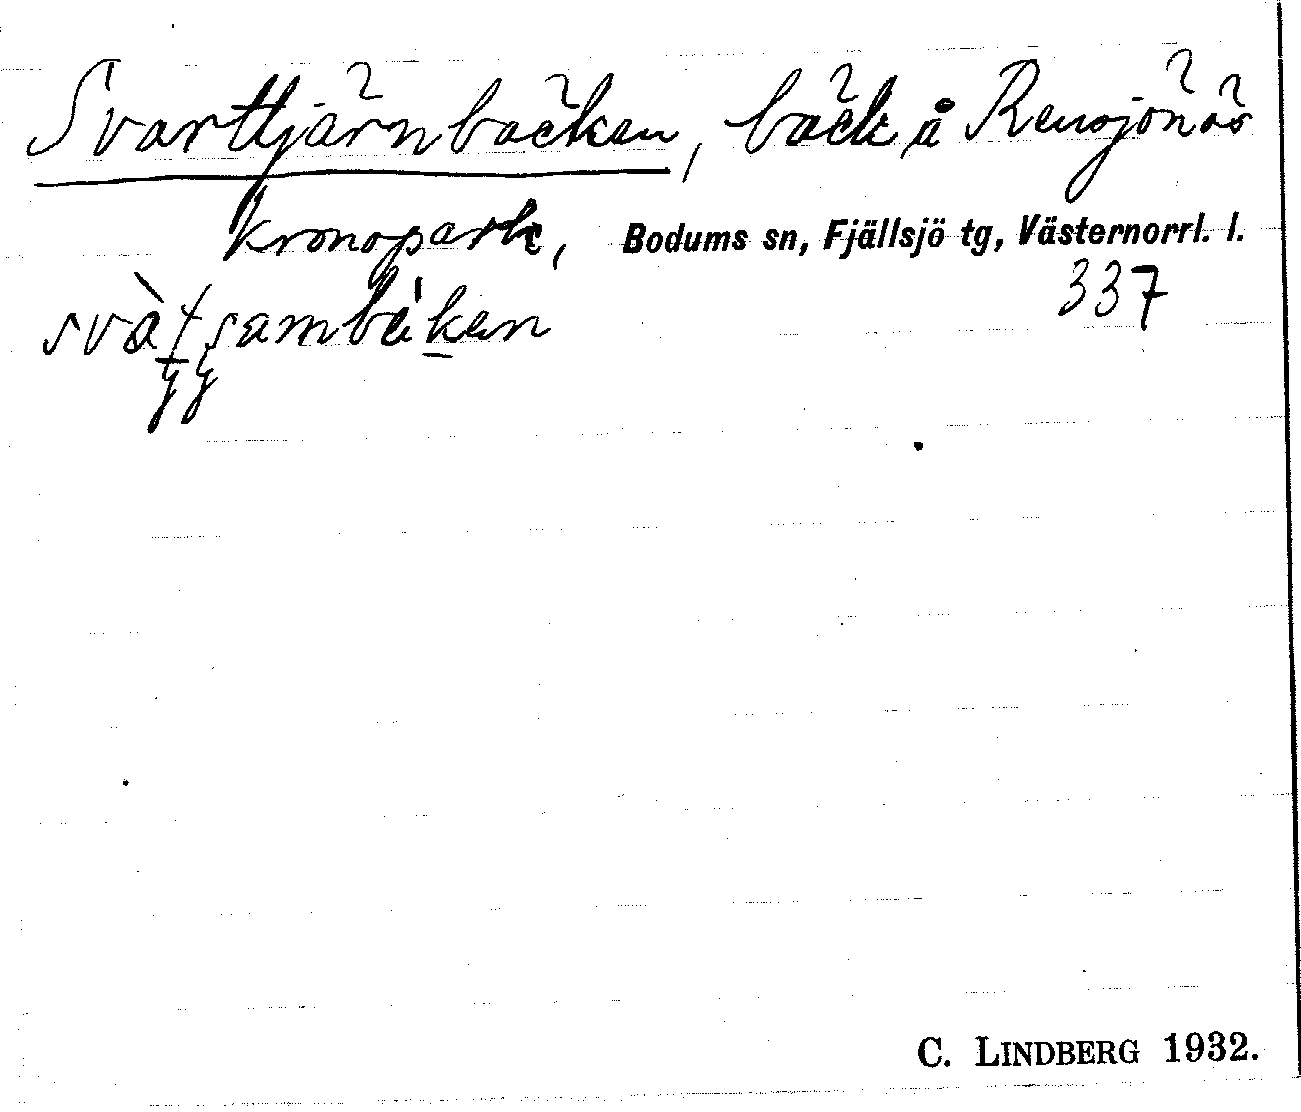 Svarttjärnbäcken, bäck å Rensjönäs
kronopark, Bodums sn, Fjällsjö tg, Västernorrl. l.
337
C. LINDBERG 1932.